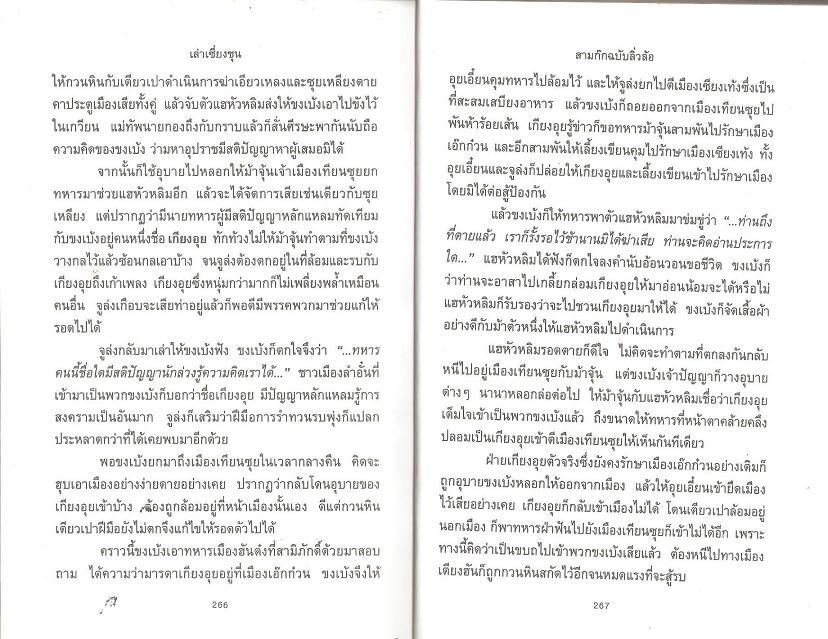 เล่าเซี่ยงชุน
ให้กวนหินกับเตียวเปาดำเนินการฆ่าเอียวเหลงและซุยเหลียงตาย
คาประตูเมืองเสียทั้งคู่ แล้วจับตัวแฮหัวหลิมส่งให้ขงเบ้งเอาไปขังไว้
ในเกวียน แม่ทัพนายกองถึงกับกราบแล้วก็สั่นศีรษะพากันนับถือ
ความคิดของขงเบ้ง ว่ามหาอุปราชมีสติปัญญาหาผู้เสมอมิได้
จากนั้นก็ใช้อุบายไปหลอกให้ม้าจุ้นเจ้าเมืองเทียนซุยยก
ทหารมาช่วยแฮหัวหลิมอีก แล้วจะได้จัดการเสียเช่นเดียวกับซุย
เหลียง แต่ปรากฏว่ามีนายทหารผู้มีสติปัญญาหลักแหลมทัดเทียม
กับขงเบ้งอยู่คนหนึ่งชื่อ เกียงอุย ทักท้วงไม่ให้ม้าจุ้นทำตามที่ขงเบ้ง
วางกลไว้แล้วซ้อนกลเอาบ้าง จนจูล่งต้องตกอยู่ในที่ล้อมและรบกับ
เกียงอุยถึงเก้าเพลง เกียงอุยซึ่งหนุ่มกว่ามากก็ไม่เพลี่ยงพล้ำเหมือน
คนอื่น จูล่งเกือบจะเสียท่าอยู่แล้วก็พอดีมีพรรคพวกมาช่วยแก้ให้
รอดไปได้
จูล่งกลับมาเล่าให้ขงเบ้งฟัง ขงเบ้งก็ตกใจจึงว่า “...ทหาร
คนนี้ชื่อใดมีสติปัญญานักล่วงรู้ความคิดเราได้...” ชาวเมืองลำอั๋นที่
เข้ามาเป็นพวกขงเบ้งก็บอกว่าชื่อเกียงอุย มีปัญญาหลักแหลมรู้การ
สงครามเป็นอันมาก จูล่งก็เสริมว่าฝีมือการรำทวนรบพุ่งก็แปลก
ประหลาดกว่าที่ได้เคยพบมาอีกด้วย
พอขงเบ้งยกมาถึงเมืองเทียนซุยในเวลากลางคืน คิดจะ
ฮุบเอาเมืองอย่างง่ายดายอย่างเคย ปรากฏว่ากลับโดนอุบายของ
เกียงอุยเข้าบ้าง ต้องถูกล้อมอยู่ที่หน้าเมืองนั้นเอง ดีแต่กวนหิน
เตียวเปาฝีมือยังไม่ตกจึงแก้ไขให้รอดตัวไปได้
คราวนี้ขงเบ้งเอาทหารเมืองฮันต๋งที่สามิภักดิ์ด้วยมาสอบ
ถาม ได้ความว่ามารดาเกียงอุยอยู่ที่เมืองเอ๊กก๋วน ขงเบ้งจึงให้
266
สามก๊กฉบับลิ่วล้อ
อุยเอี๋ยนคุมทหารไปล้อมไว้ และให้จูล่งยกไปตีเมืองเซียงเท้งซึ่งเป็น
ที่สะสมเสบียงอาหาร แล้วขงเบ้งก็ถอยออกจากเมืองเทียนซุยไป
พันห้าร้อยเส้น เกียงอุยรู้ข่าวก็ขอทหารม้าจุ้นสามพันไปรักษาเมือง
เอ๊กก๋วน และอีกสามพันให้เลี้ยงเขียนคุมไปรักษาเมืองเซียงเท้ง ทั้ง
อุยเอี๋ยนและจูล่งก็ปล่อยให้เกียงอุยและเลี้ยงเขียนเข้าไปรักษาเมือง
โดยมิได้ต่อสู้ป้องกัน
แล้วขงเบ้งก็ให้ทหารพาตัวแฮหัวหลิมมาข่มขู่ว่า “...ท่านถึง
ที่ตายแล้ว เราก็รั้งรอไว้ช้านานมิได้ฆ่าเสีย ท่านจะคิดอ่านประการ
ใด...” แฮหัวหลิมได้ฟังก็ตกใจลงคำนับอ้อนวอนขอชีวิต ขงเบ้งก็
ว่าท่านจะอาสาไปเกลี้ยกล่อมเกียงอุยให้มาอ่อนน้อมจะได้หรือไม่
แฮหัวหลิมก็รับรองว่าจะไปชวนเกียงอุยมาให้ได้ ขงเบ้งก็จัดเสื้อผ้า
อย่างดีกับม้าตัวหนึ่งให้แฮหัวหลิมไปดำเนินการ
แฮหัวหลิมรอดตายก็ดีใจ ไม่คิดจะทำตามที่ตกลงกันกลับ
หนีไปอยู่เมืองเทียนซุยกับม้าจุ้น แต่ขงเบ้งเจ้าปัญญาก็วางอุบาย
ต่างๆ นานาหลอกล่อต่อไป ให้ม้าจุ้นกับแฮหัวหลิมเชื่อว่าเกียงอุย
เต็มใจเข้าเป็นพวกขงเบ้งแล้ว ถึงขนาดให้ทหารที่หน้าตาคล้ายคลึง
ปลอมเป็นเกียงอุยเข้าตีเมืองเทียนซุยให้เห็นกันทีเดียว
ฝ่ายเกียงอุยตัวจริงซึ่งยังคงรักษาเมืองเอ๊กก๋วนอย่างเดิมก็
ถูกอุบายขงเบ้งหลอกให้ออกจากเมือง แล้วให้อุยเอี๋ยนเข้ายึดเมือง
ไว้เสียอย่างเคย เกียงอุยก็กลับเข้าเมืองไม่ได้ โดนเตียวเปาล้อมอยู่
นอกเมือง ก็พาทหารฝ่าฟันไปยังเมืองเทียนซุยก็เข้าไม่ได้อีก เพราะ
ทางนี้คิดว่าเป็นขบถไปเข้าพวกขงเบ้งเสียแล้ว ต้องหนีไปทางเมือง
เตียงฮันก็ถูกกวนหินสกัดไว้อีกจนหมดแรงที่จะสู้รบ
267